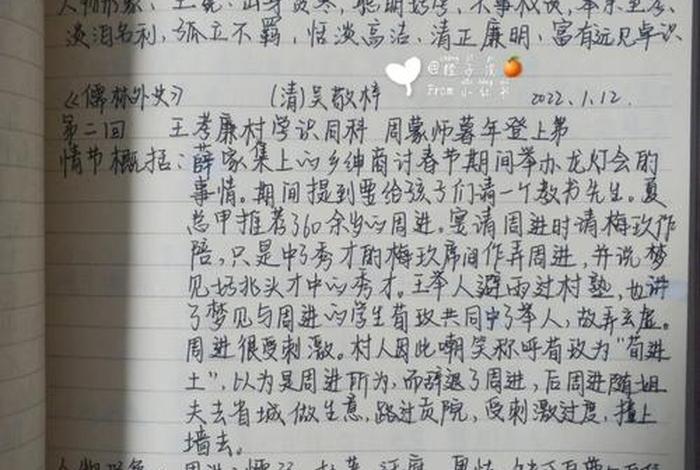 人物形象：王冕：出身贫寒，聪明好学，不事权贵，奉亲至孝，
淡泊名利，孤立不羁，恬淡高洁，清正廉明，富有远见卓识
From 小红书
《儒林外史》 (清)吴敬梓 2022.1.12.
第二回 王孝廉村学识同科 周蒙师暮年登上第
情节概括：薛家集上的乡绅商讨春节期间举办龙灯会的
事情。期间提到要给孩子们请一个教书先生。夏
总甲推荐了60余岁的周进。宴请周进时请梅玖作
陪，只是中了秀才的梅玖席间作弄周进，并说梦
见好兆头才中的秀才。王举人避雨过村塾，也讲
了梦见与周进的学生荀玫共同中了举人，故弄玄虚。
周进很受刺激。村人因此嘲笑称呼荀玫为“荀进
士”，以为是周进所为，而辞退了周进，后周进随姐
夫去省城做生意，路过贡院，受刺激过度，撞上
墙去。